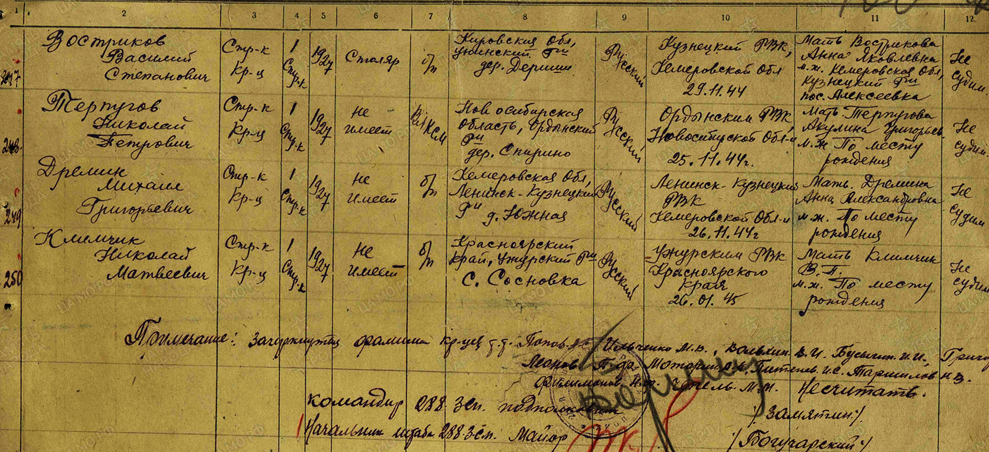 1 2 3 4 5 6 7 8 9 10 11 12.
247 Востриков Василий Степанович Стр-к Кр-ц 1 Стр.к 1927 Столяр б/п Кировская Обл, Унинский Р-н дер. Дериши Русский Кузнецкий РВК, Кемеровской Обл 29.11.44 Мать Вострикова Анна Яковлевна м.ж. Кемеровская Обл, Кузнецкий Р-н пос. Алексеевка Не судим.
248 Терпугов Николай Петрович Стр-к Кр-ц 1 Стр.к 1927 Не имеет ВЛКСМ Новосибирская Область, Ордынский Р-н дер. Спирино Русский Ордынским РВК Новосибирской Обл-и 25.11.44г. Мать Терпугова Акулина Григорьев. м.ж. По месту рождения Не судим.
249 Дремин Михаил Григорьевич Стр-к Кр-ц 1 Стр.к 1927 Не имеет б/п Кемеровская Обл Ленинск-Кузнецкий Р-н д. Южная Русский Ленинск-Кузнецким РВК Кемеровской Обл-и 26.11.44г Мать Дремина Анна Александровна м.ж. По месту рождения Не судим
250 Климчик Николай Матвеевич Стр-к Кр-ц 1 Стр.к 1927 Не имеет б/п Красноярский Край, Ужурский Р-н с. Сосновка Русский Ужурским РВК Красноярского Края 26.01.45 Мать Климчик В.П. м.ж. По месту рождения Не судим.
Примечание: зачеркнутые фамилии кр-цев Ильченко М.В.
не считать.
Командир 288 зсп. подполковник /Замятин/
Начальник штаба 288 зсп. Майор /Богучарский/